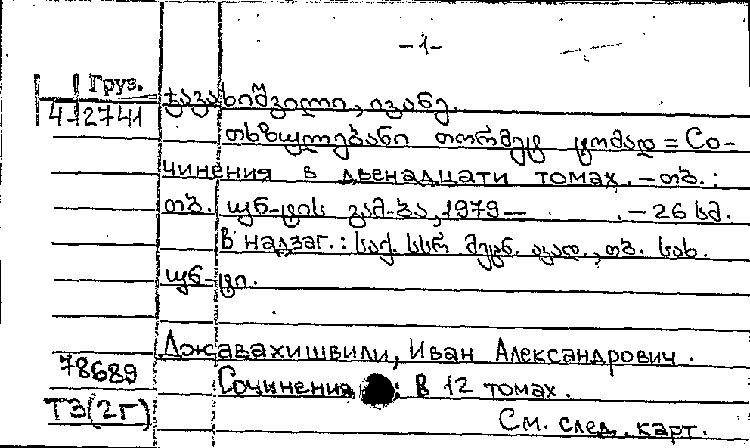 -1-
Груз.
ჯავახიშვილი, ივანე.
4-12741
თხზულებანი თორმეტ ტომად = Со-
чинения в двенадцати томах. - თბ. :
თბ. უნ-ტის გამ-ბა, 1979 - . - 26 სმ.
В надзаг.: საქ. სსრ მეცნ. აკად., თბ. სახ.
უნ-ტი.
Джавахишвили, Иван Александрович.
78689
Сочинения : В 12 томах.
ТЗ(2Г)
См. след. карт.